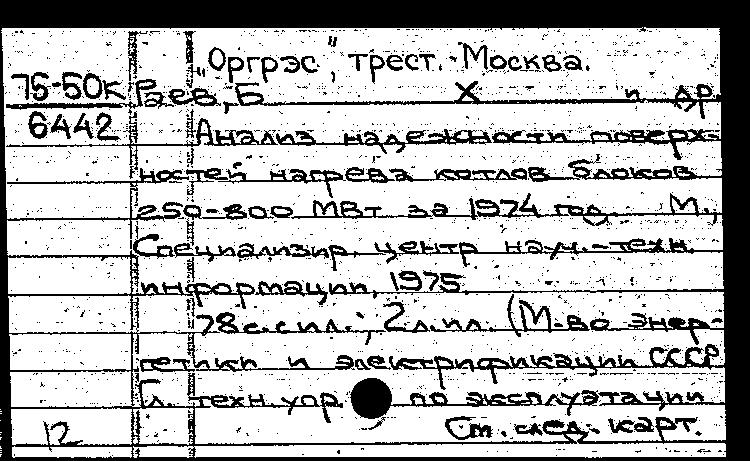 "Оргрэс", трест. Москва.
75-50к Раев, Б х и др.
6442 Анализ надежности поверх-
ностей нагрева котлов блоков
250-800 МВт за 1974 год. М.,
Специализир. центр науч.-техн.
информации, 1975.
78 с. с ил.; 2 л. ил. (М-во энер-
гетики и электрификации СССР
Гл. техн. упр. по эксплуатации
12 См. след. карт.